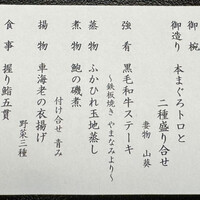 御椀
御造り 本まぐろトロと
二種盛り合せ
妻物 山葵
強肴 黒毛和牛ステーキ
～鉄板焼き やまなみより～
蒸物 ふかひれ玉地蒸し
煮物 鮑の磯煮
付け合せ 青み
揚物 車海老の衣揚げ
野菜三種
食事 握り鮨五貫